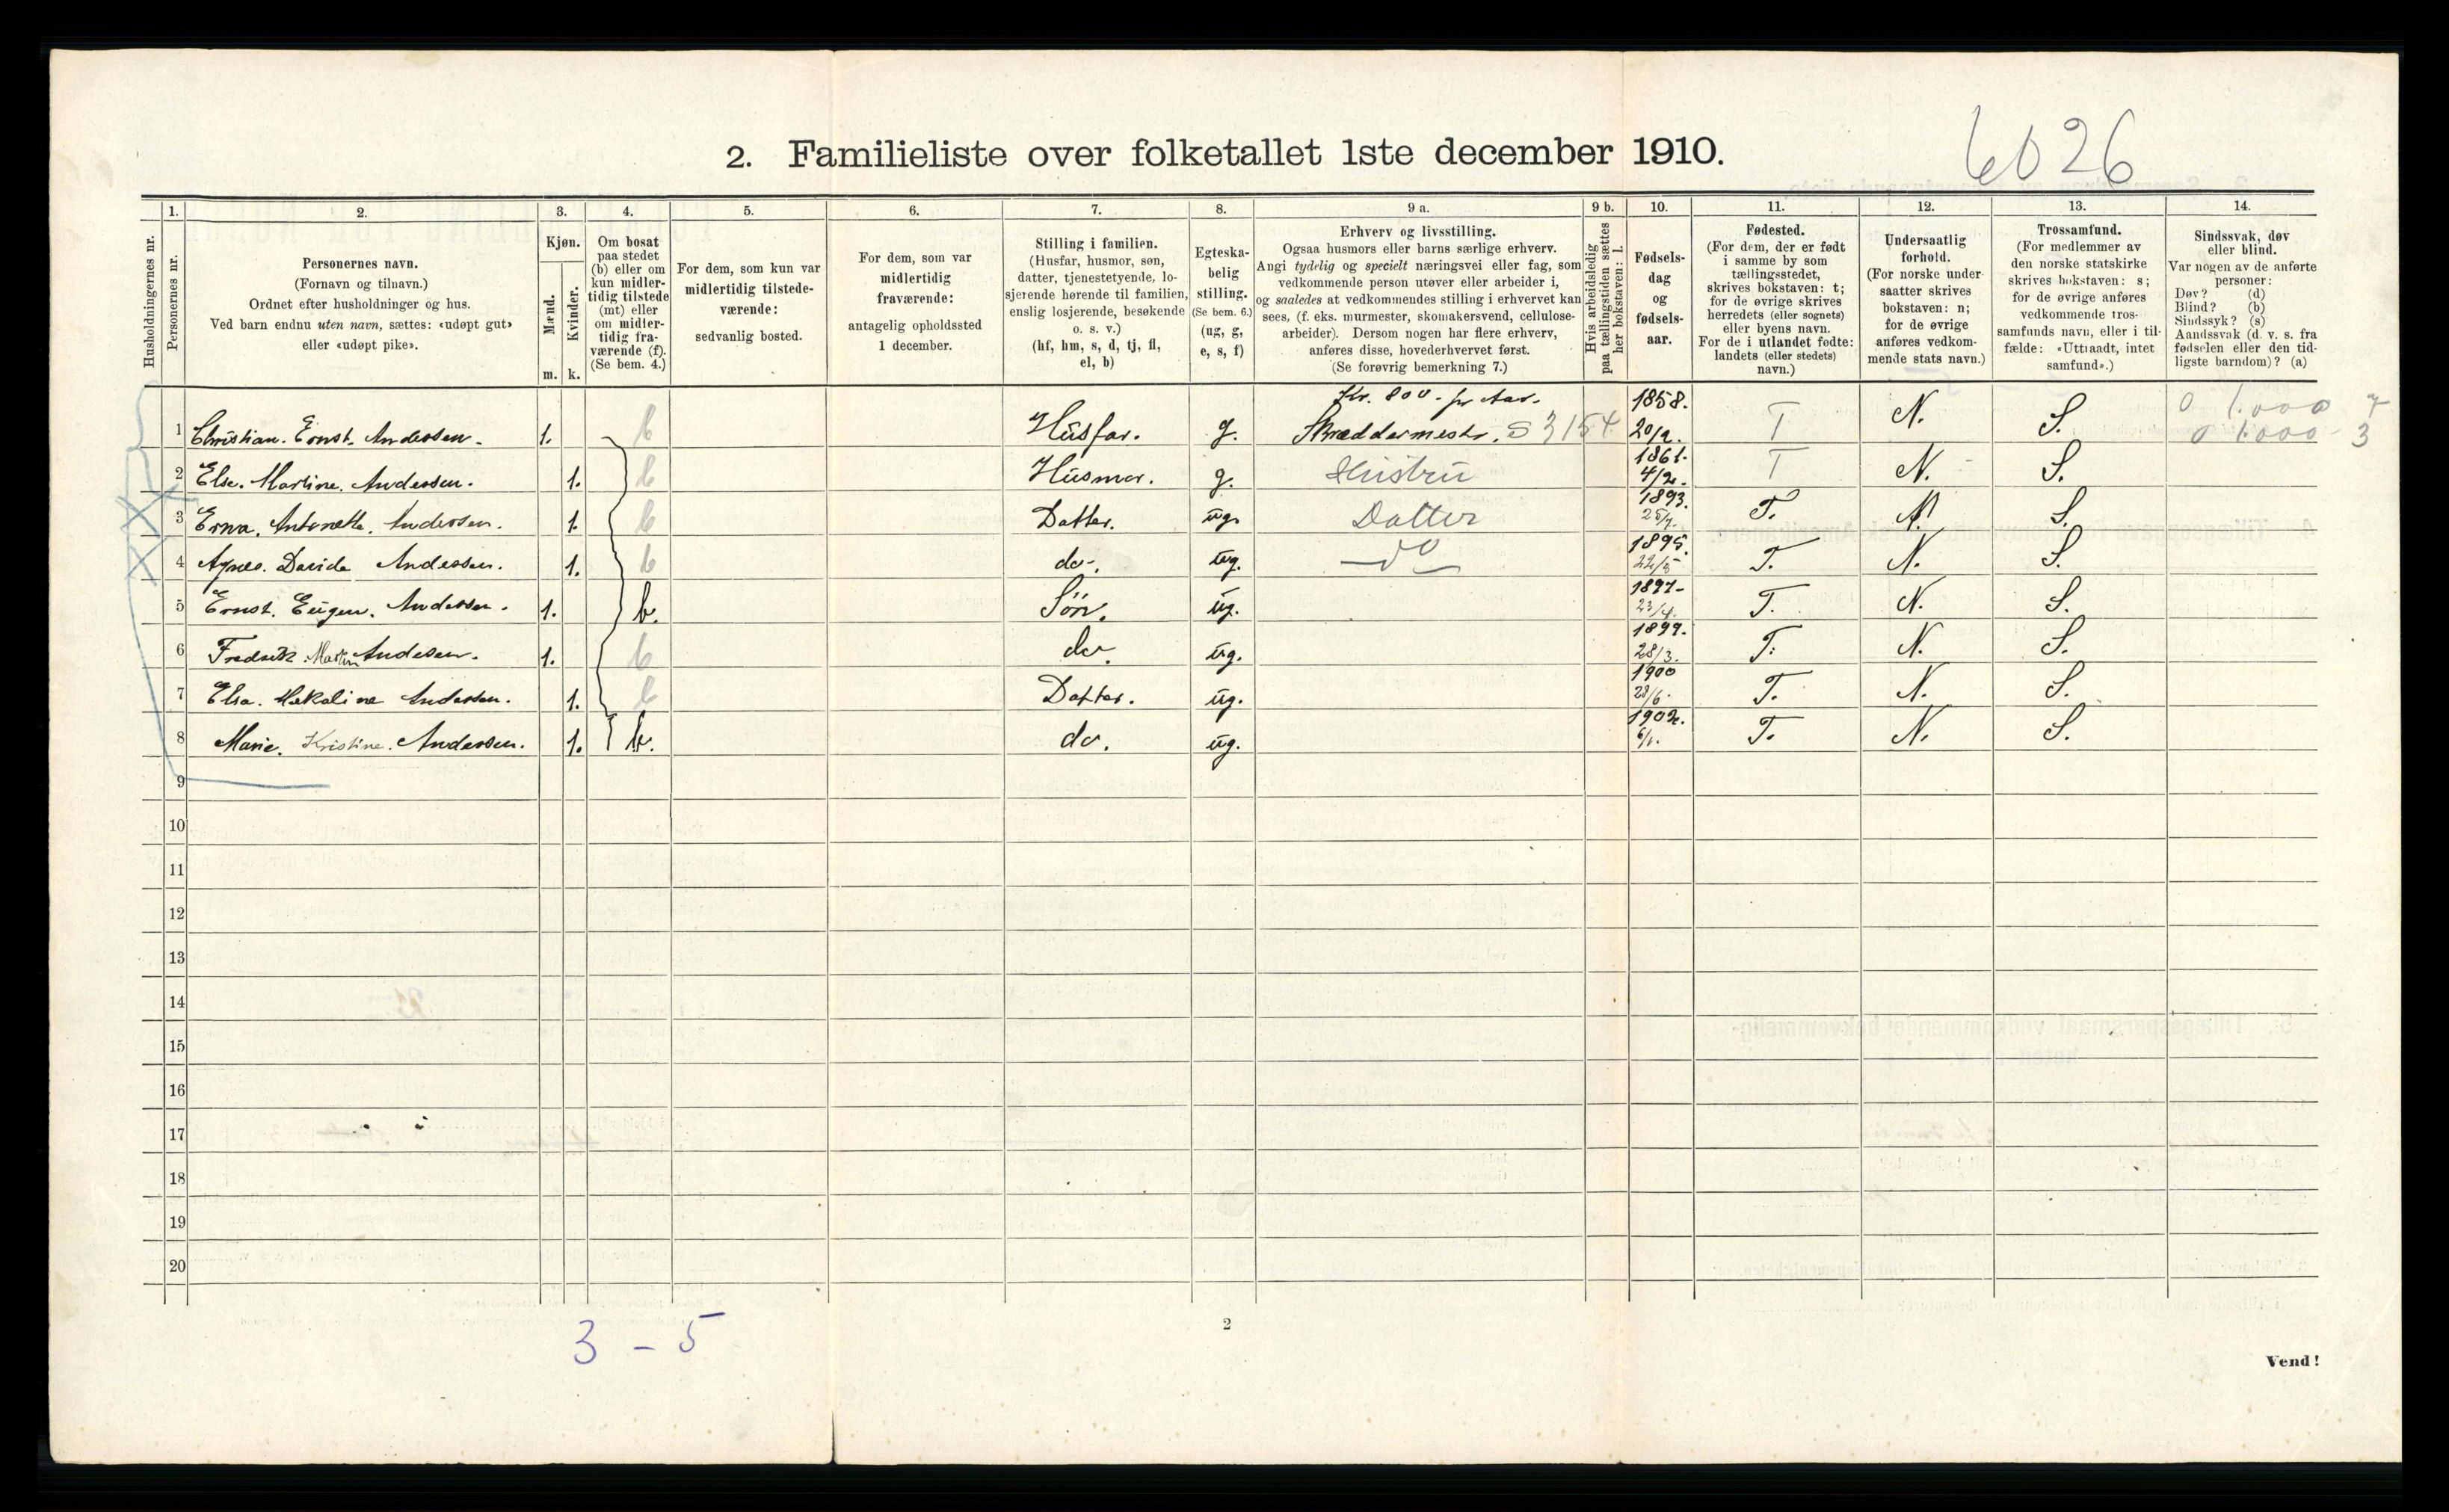 6026
2. Familieliste over folketallet 1ste december 1910.
Husholdningernes nr.
1. Personernes nr.
2. Personernes navn.
(Fornavn og tilnavn.)
Ordnet efter husholdninger og hus.
Ved barn endnu uten navn, sættes: «udøpt gut»
eller «udøpt pike».
3. Kjøn.
Mænd. m.
Kvinder. k.
4. Om bosat
paa stedet
(b) eller om
kun midler-
tidig tilstede
(mt) eller
om midler-
tidig fra-
værende (f).
(Se bem. 4.)
5. For dem, som kun var
midlertidig tilstede-
værende:
sedvanlig bosted.
6. For dem, som var
midlertidig
fraværende:
antagelig opholdssted
1 december.
7. Stilling i familien.
(Husfar, husmor, søn,
datter, tjenestetyende, lo-
sjerende hørende til familien,
enslig losjerende, besøkende
o. s. v.)
(hf, hm, s, d, tj, fl,
el, b)
8. Egteska-
belig
stilling.
(Se bem. 6.)
(ug, g,
e, s, f)
9 a. Erhverv og livsstilling.
Ogsaa husmors eller barns særlige erhverv.
Angi tydelig og specielt næringsvei eller fag, som
vedkommende person utøver eller arbeider i,
og saaledes at vedkommendes stilling i erhvervet kan
sees, (f. eks. murmester, skomakersvend, cellulose-
arbeider). Dersom nogen har flere erhverv,
anføres disse, hovederhvervet først.
(Se forøvrig bemerkning 7.)
9 b. Hvis arbeidsledig
paa tællingstiden sættes
her bokstaven: l.
10. Fødsels-
dag
og
fødsels-
aar.
11. Fødested.
(For dem, der er født
i samme by som
tællingsstedet,
skrives bokstaven: t;
for de øvrige skrives
herredets (eller sognets)
eller byens navn.
For de i utlandet fødte:
landets (eller stedets)
navn.)
12. Undersaatlig
forhold.
(For norske under-
saatter skrives
bokstaven: n;
for de øvrige
anføres vedkom-
mende stats navn.)
13. Trossamfund.
(For medlemmer av
den norske statskirke
skrives bokstaven: s;
for de øvrige anføres
vedkommende tros-
samfunds navn, eller i til-
fælde: «Uttraadt, intet
samfund».)
14. Sindssvak, døv
eller blind.
Var nogen av de anførte
personer:
Døv? (d)
Blind? (b)
Sindssyk? (s)
Aandssvak (d. v. s. fra
fødselen eller den tid-
ligste barndom)? (a)
Kr. 800.- pr Aar.
1 Christian. Ernst. Andersen. 1. b Husfar. g. Skræddermestr. S 3154 1858. 20/2. T N. S. 0 1.000 7
0 1.000 - 3
2 Else. Martine. Andersen. 1. b Husmor. g. Hustru 1861. 4/2. T N. S.
3 Erna. Antonette. Andersen. 1. b Datter. ug. Datter 1893. 25/7. T. N. S.
4 Agnes. Davida Andersen. 1. b do. ug. do 1895. 22/5 T. N. S.
5 Ernst. Eugen. Andersen. 1. b. Sön. ug. 1897- 23/4. T. N. S.
6 Fredrik. Martin Andersen. 1. b do. ug. 1899. 28/3. T. N. S.
7 Elsa. Andersen. 1. b Datter. ug. 1900 28/6. T. N. S.
8 Marie. Kristine. Andersen. 1. b. do. ug. 1902. 6/1. T. N. S.
9
10
11
12
13
14
15
16
17
18
19
20
3 - 5
2
Vend!